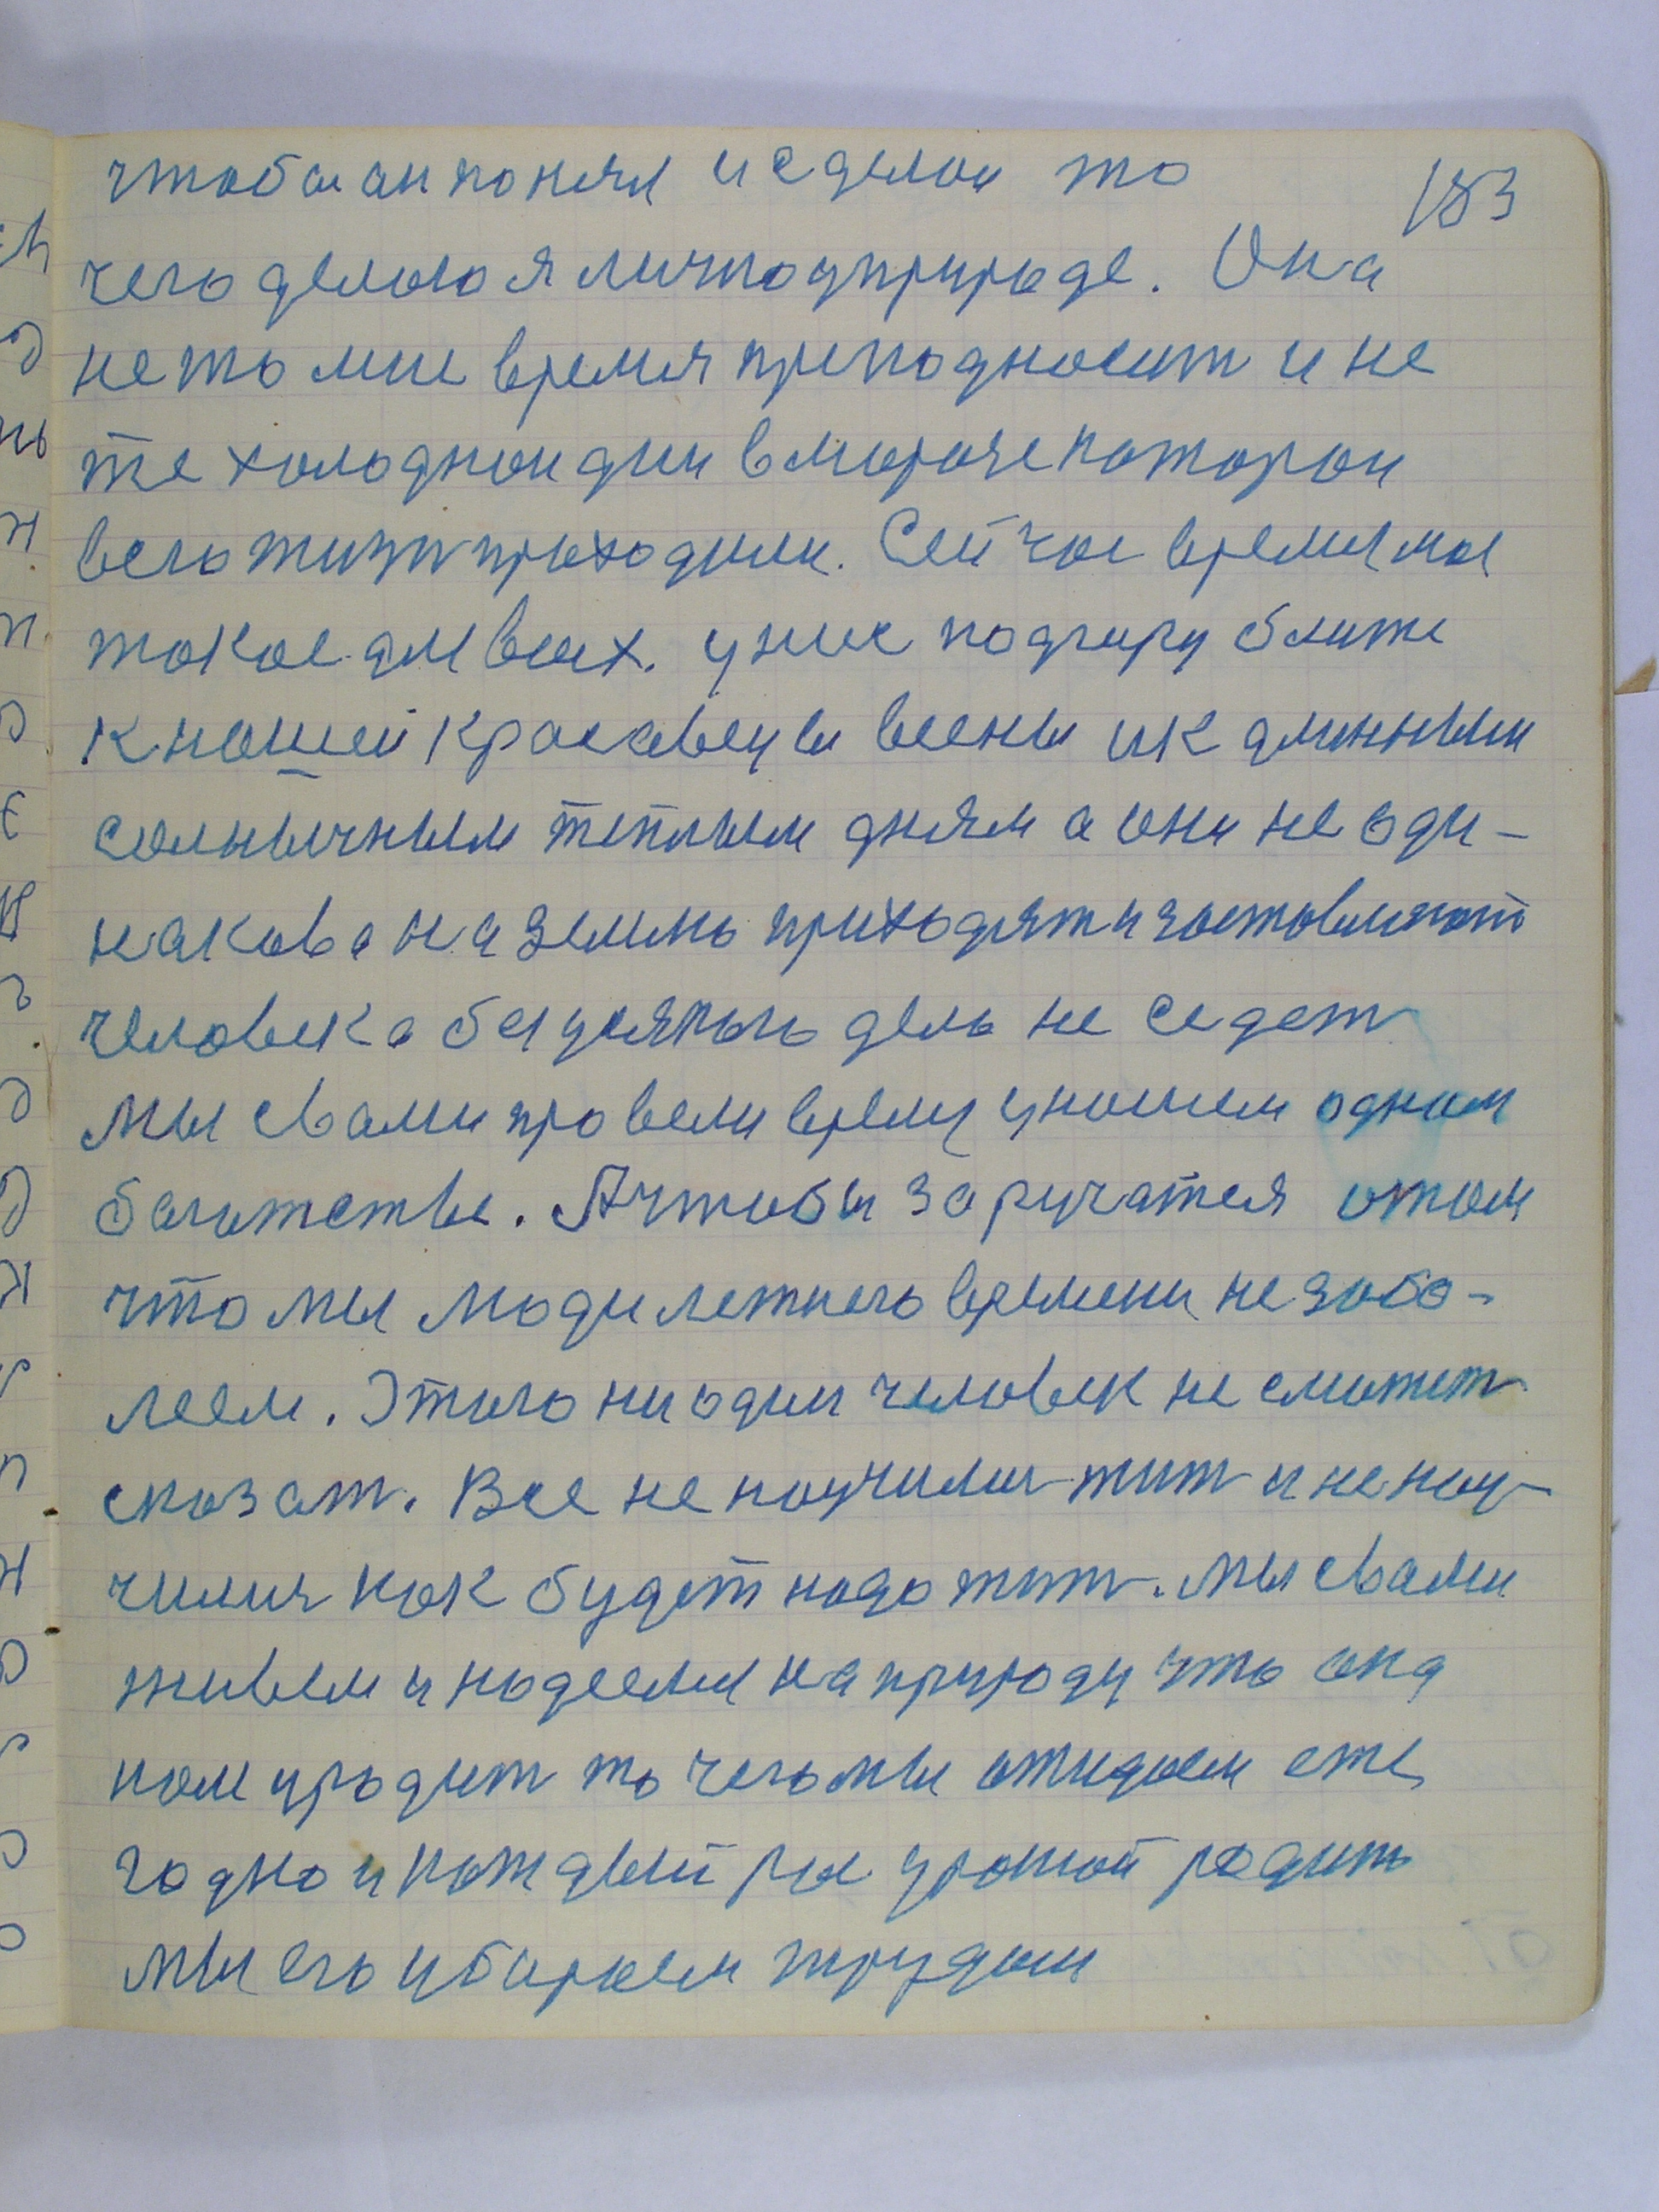 чтобы он понял и сделал то
183
чего делаю я лично у природе. Она
не то мне время преподносит и не
те холодной дни в морозе которои
в его жизни проходили. Сейчас время мы
такое для всех. у нис под гиру ближе
к нашей красавецы весны и к длинными
солнычным теплым дням а они не оди-
накова на землю приходят и заставляють
человека без усякого дела не седет
мы с вами провели время у нашем одном
багатстве. А чтобы заручатся отом
что мы люди летнего времени не забо-
леем. Этого ни один человек не сможет
сказат. Все не научилис жит и не нау-
чились как будет надо жит. мы с вами
живем и надеемся на природу что она
нам уродит то чего мы ожидаем еже
годно и каждый рас урожай родить
мы его убираем трудом